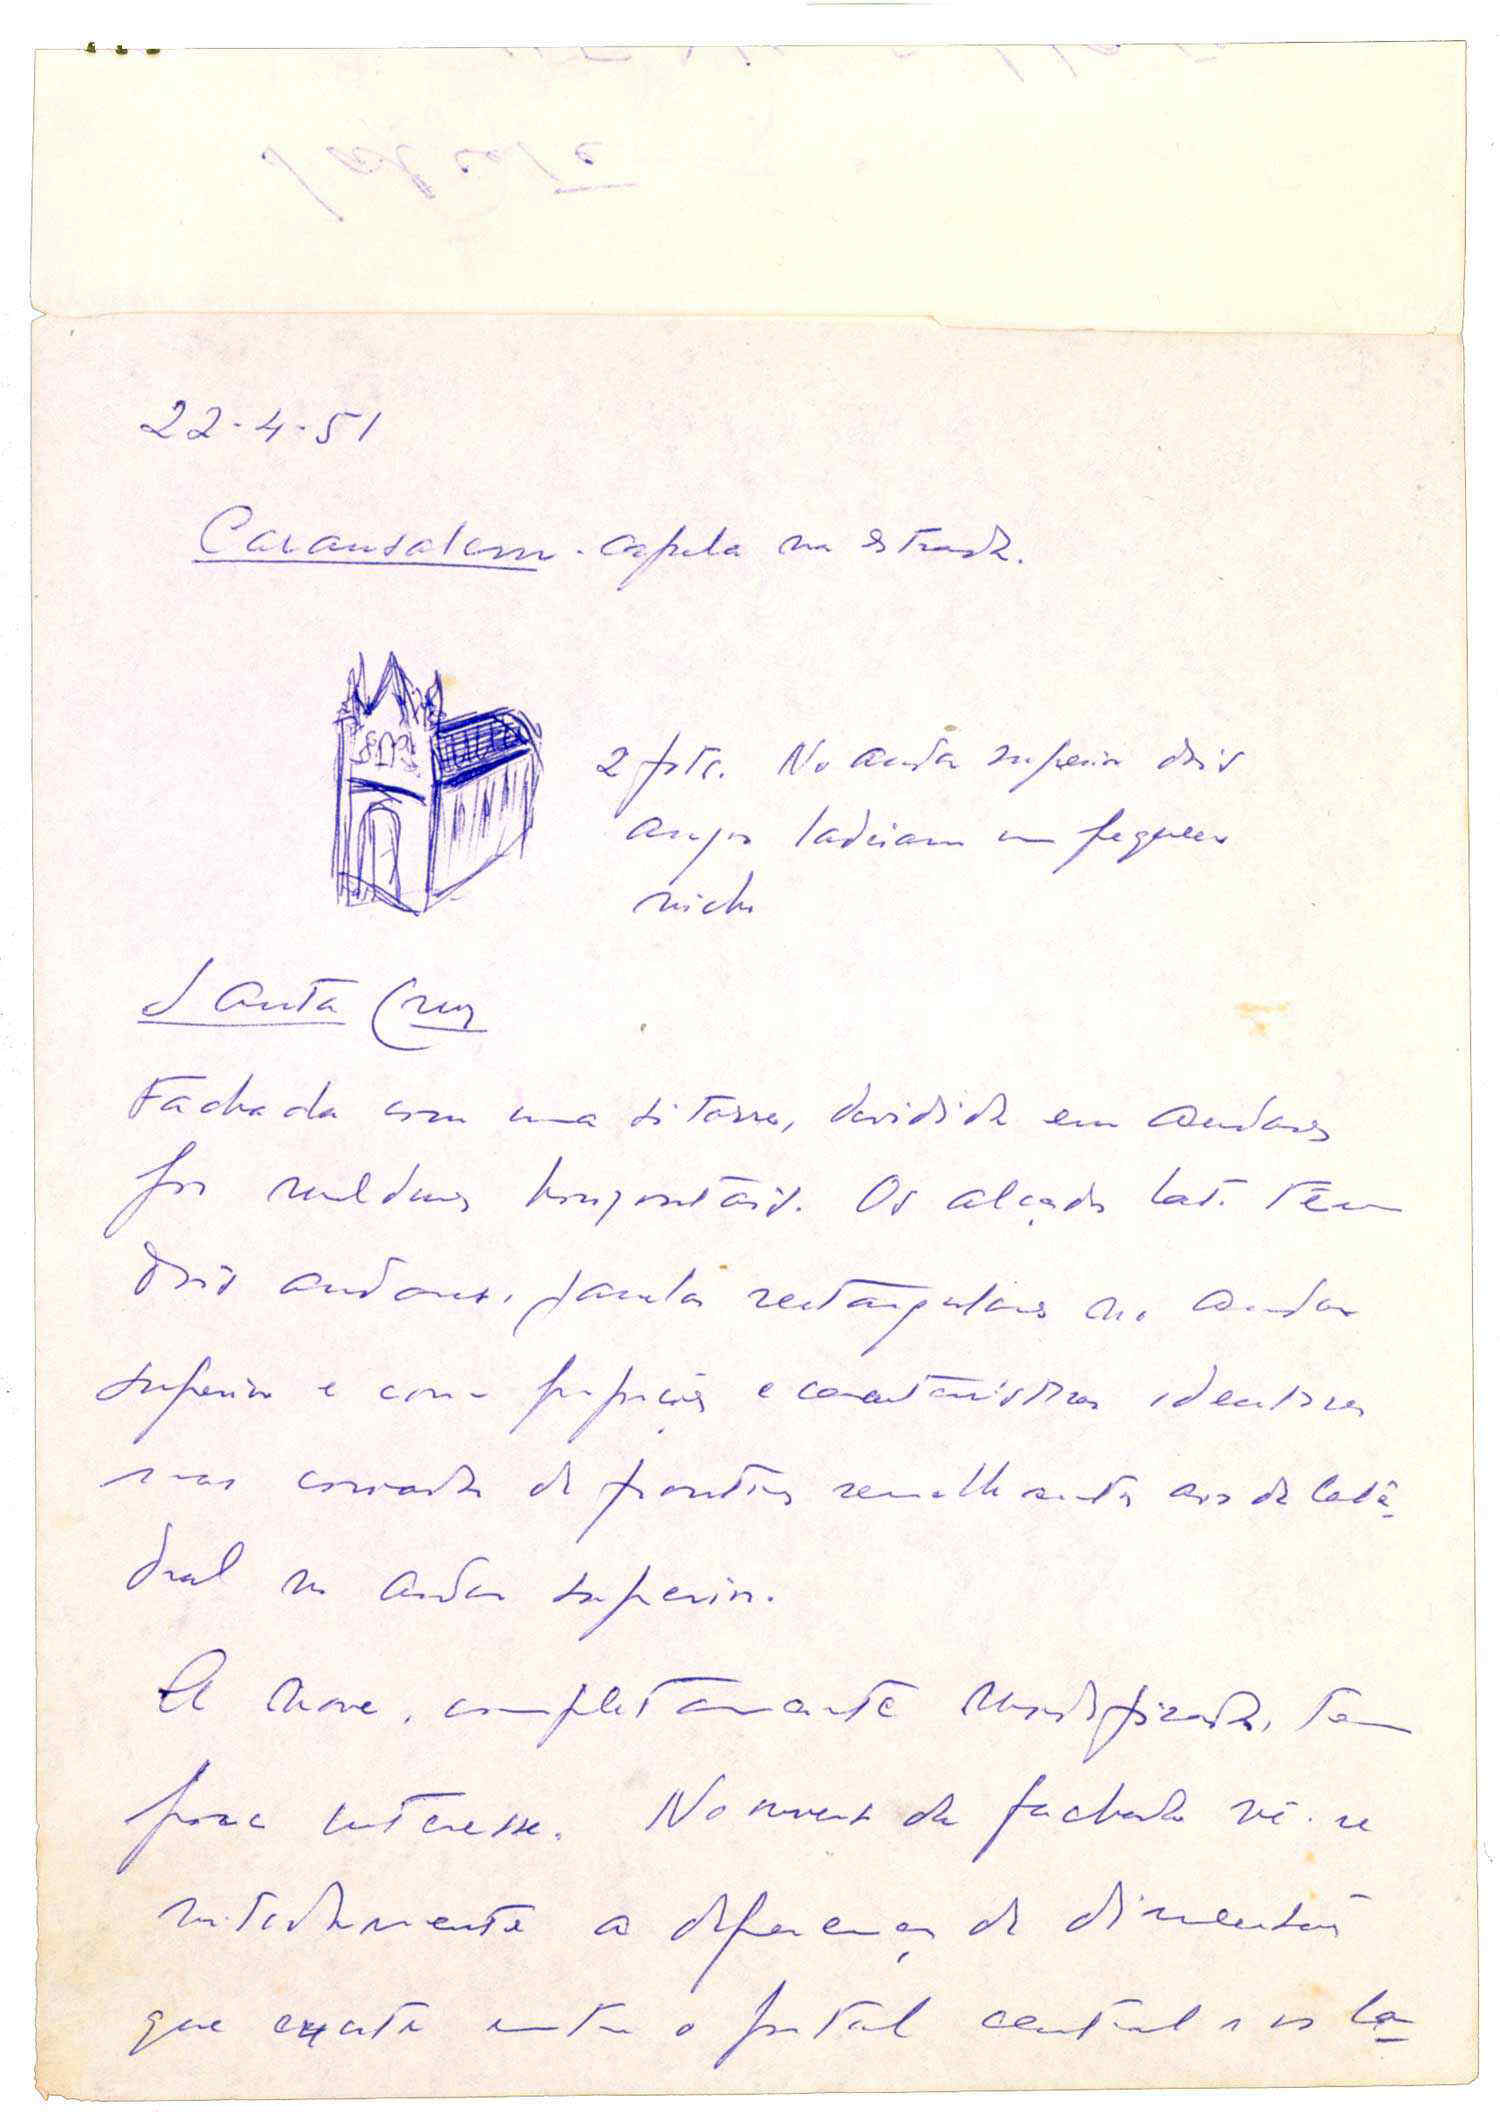 22-4-51
Caransalem - capela na estrada.
2 fotos. No andar superior dois
anjos ladeiam um pequeno
nicho
Santa Cruz
Fachada com uma só torre, dividida em andares
por molduras horizontais. Os alçados lat. têm
dois andares, janelas rectangulares no andar
superior e com proporções e características idênticas
mas coroadas de frontões semelhantes aos da Cate-
dral no andar superior.
A nave, completamente modificada, tem
pouco interesse. No inverso da fachada vê-se
nitidamente a diferença de dimensões
que existe entre o portal central e os la-